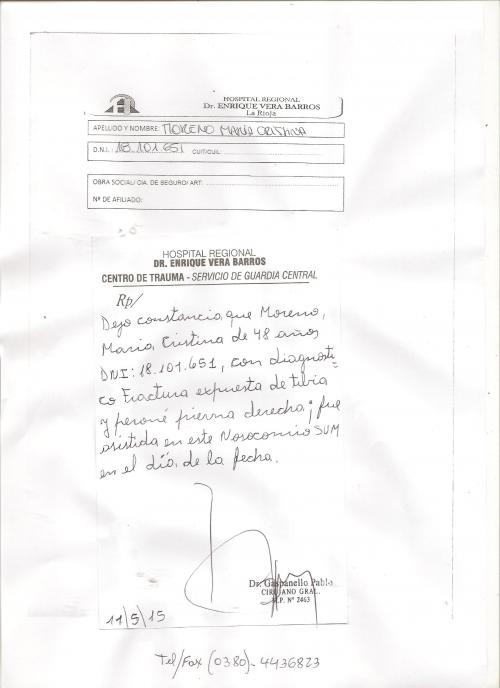 HOSPITAL REGIONAL
Dr. ENRIQUE VERA BARROS
La Rioja
APELLIDO Y NOMBRE: MORENO MARÍA CRISTINA
D.N.I.: 18.101.651 CUIT/CUIL:
OBRA SOCIAL/ CIA. DE SEGURO/ ART:
Nº DE AFILIADO:
HOSPITAL REGIONAL
DR. ENRIQUE VERA BARROS
CENTRO DE TRAUMA - SERVICIO DE GUARDIA CENTRAL
Rp/
Dejo constancia que Moreno,
María Cristina de 48 años
DNI: 18.101.651, con diagnosti-
co Fractura expuesta de tibia
y peroné pierna derecha; fue
asistida en este Nosocomio SUM
en el día de la fecha.
Dr. Gaspanello Pablo
CIRUJANO GRAL.
M.P. Nº 2463
11/5/15
Tel/Fax (0380)-4436823